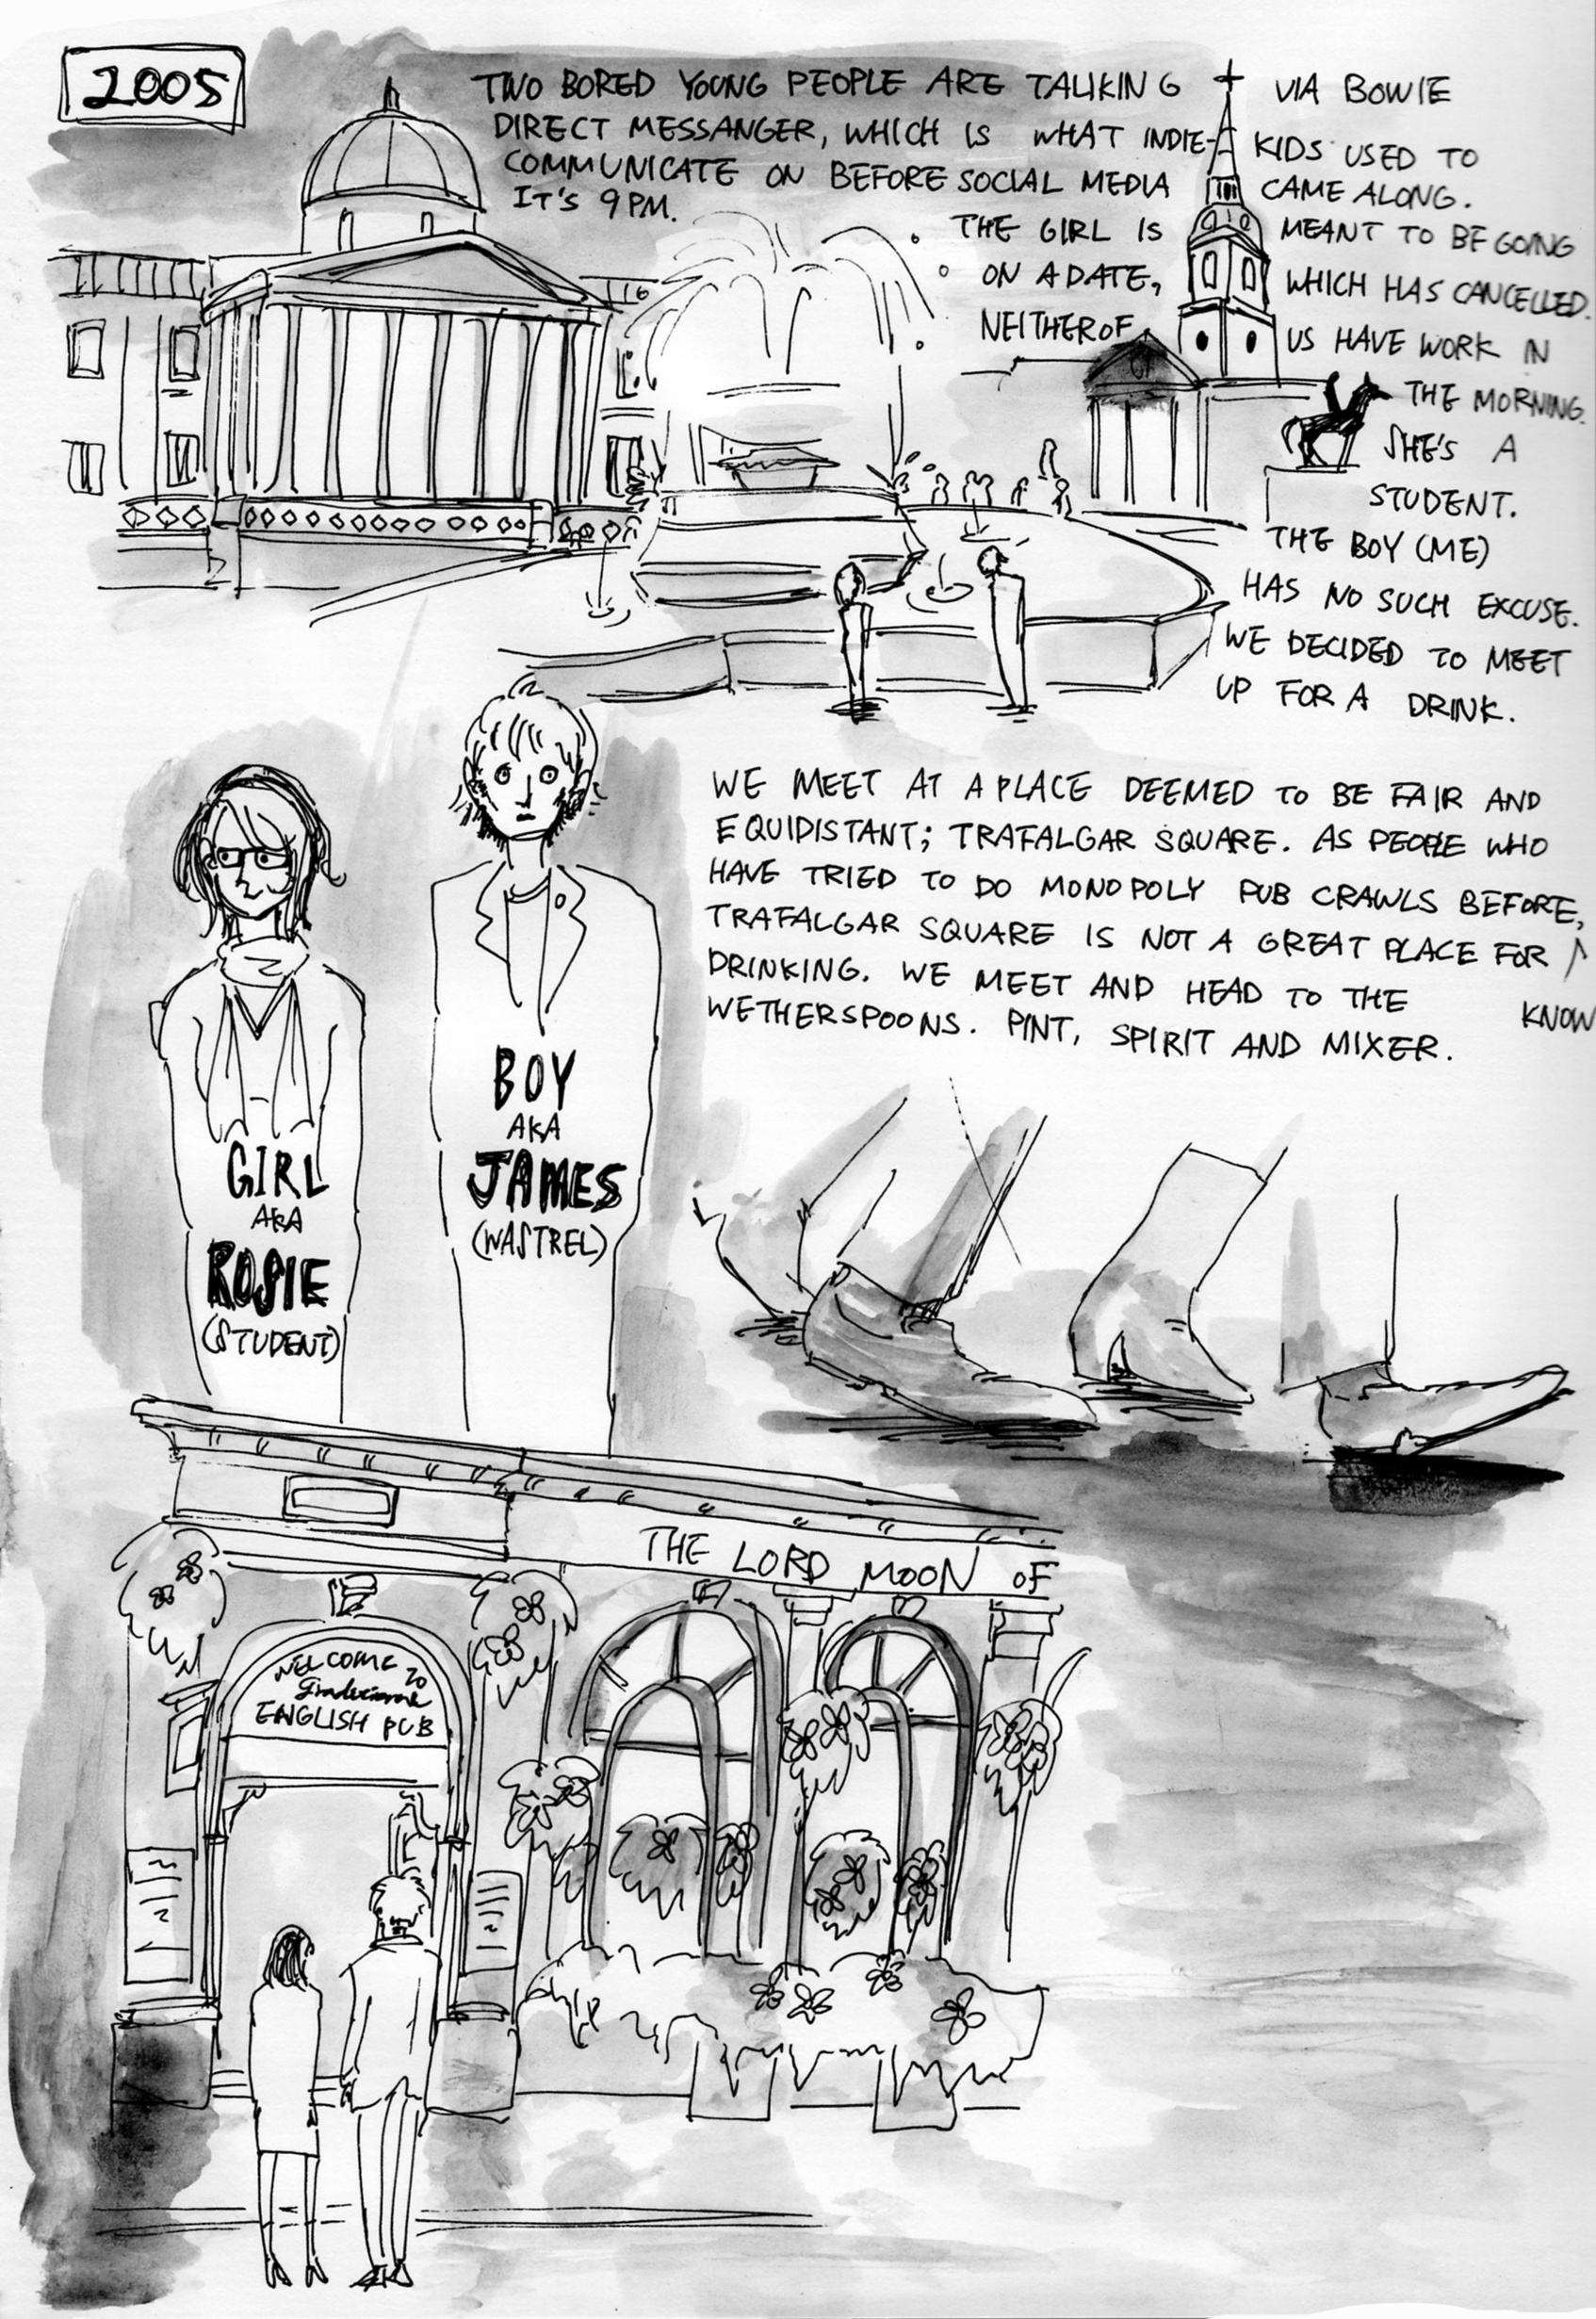 2005
TWO BORED YOUNG PEOPLE ARE TALKING VIA BOWIE
DIRECT MESSANGER, WHICH IS WHAT INDIE KIDS USED TO
COMMUNICATE ON BEFORE SOCIAL MEDIA CAME ALONG.
IT'S 9PM.
THE GIRL IS MEANT TO BE GOING
ON A DATE, WHICH HAS CANCELLED.
NEITHER OF US HAVE WORK IN
THE MORNING.
SHE'S A
STUDENT.
THE BOY (ME)
HAS NO SUCH EXCUSE.
WE DECIDED TO MEET
UP FOR A DRINK.
WE MEET AT A PLACE DEEMED TO BE FAIR AND
EQUIDISTANT; TRAFALGAR SQUARE. AS PEOPLE WHO
HAVE TRIED TO DO MONOPOLY PUB CRAWLS BEFORE,
KNOW
TRAFALGAR SQUARE IS NOT A GREAT PLACE FOR
DRINKING. WE MEET AND HEAD TO THE
WETHERSPOONS. PINT, SPIRIT AND MIXER.
GIRL
AKA
ROSIE
(STUDENT)
BOY
AKA
JAMES
(WASTREL)
THE LORD MOON OF
WELCOME TO
ENGLISH PUB